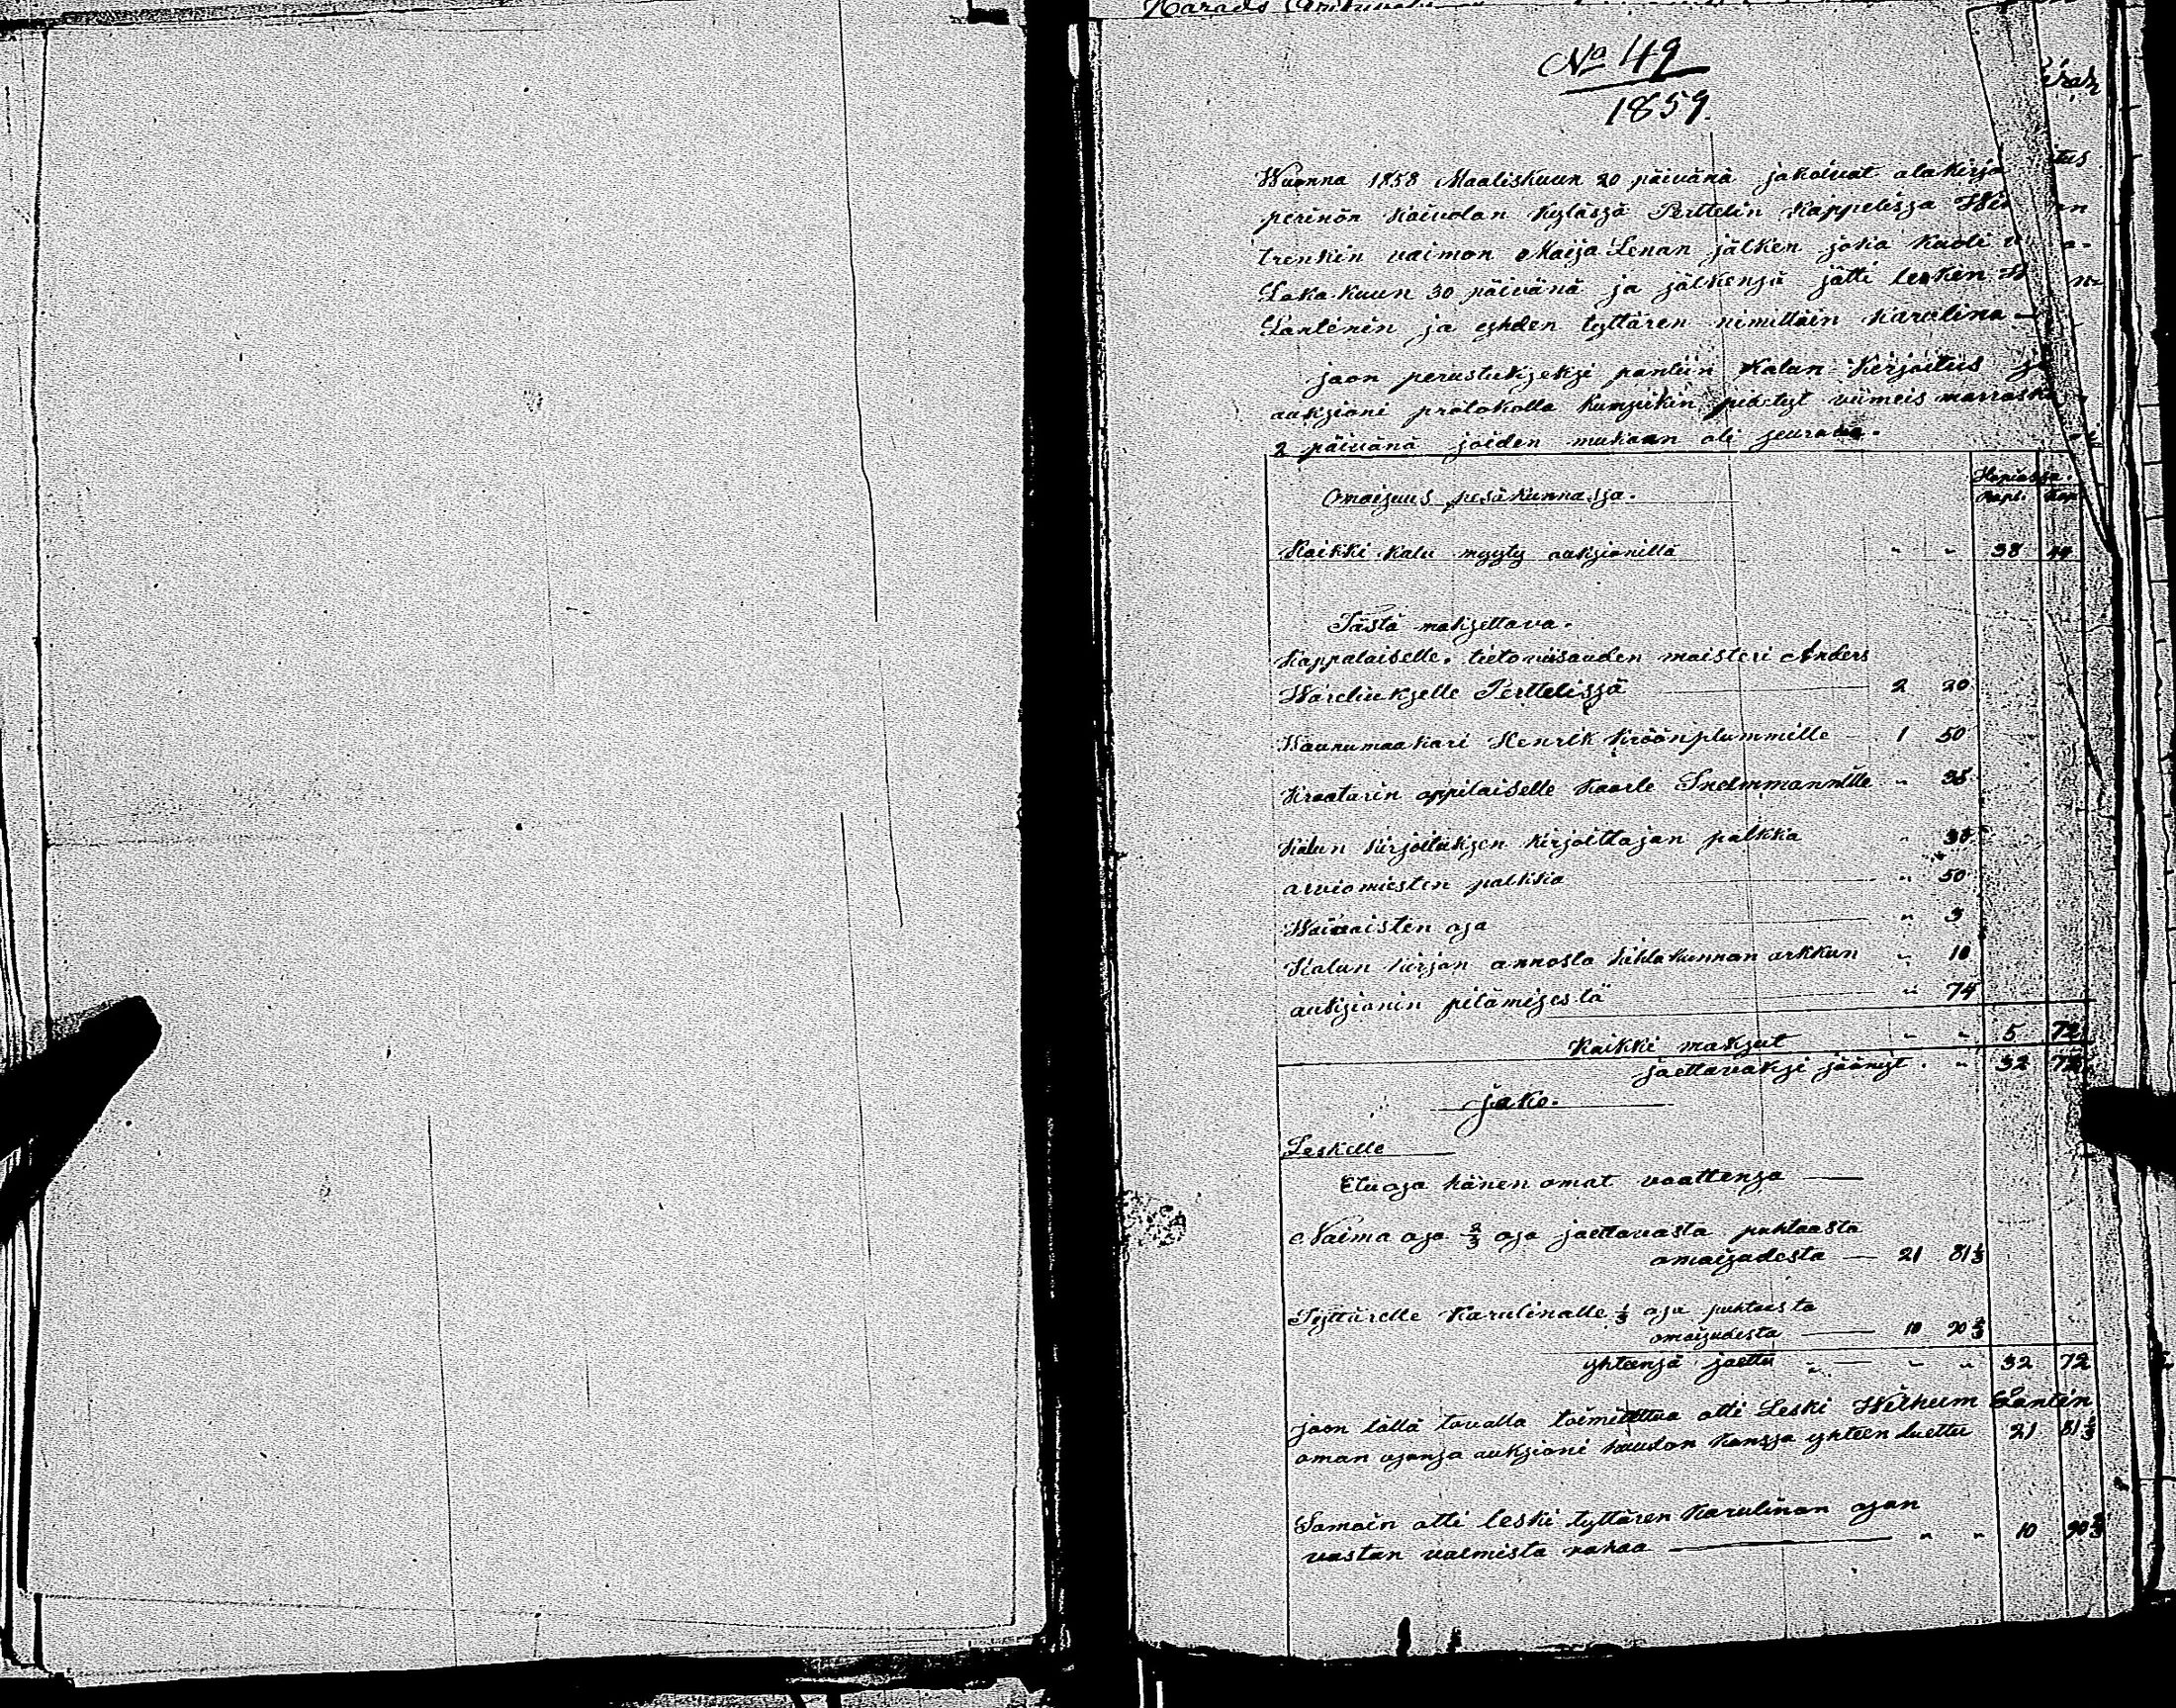 Härads
No 49
1859.
Wuonna 1858 Maaliskuun 20 päivänä jakoivat alakirjo
perinön Kaivolan Kylässä Perttelin Kappelissa
trenkin vaimon Maija Lenan jälken joka kuoli
Loka kuun 30 päivänä ja jälkensä jätti lesken
Lanténin ja yhden tyttären nimittäin Karulina —
jaon perustukseksi pantiin Kalun Kirjoitus ja
auksioni protokolla kumpikin pidetyt viimeis marrasku
2 päivänä joiden mukaan oli seurava.
Hopiassa.
Omaisuus pesäkunnassa. Rupl. Kop
Kaikki kalu myyty auksionilla " " 38 44
Tästä maksettava.
Kappalaiselle, tietoviisauden maisteri Anders
Wareliukselle Perttelissä — 2 20
Waunumaakari Henrik Kröönplummille — 1 50
Kraatarin oppilaiselle Kaarle Snelmmannille " 35
Kalun kirjoituksen kirjoittajan palkka " 30
arviomiesten palkka — " 50
Waivaisten osa — " 3
Kalun kirjan annosta kihlakunnan arkkun " 10
auksionin pitämisestä — " 74
Kaikki maksut " " 5 72
jaettavaksi jäänyt . " 32 72
jako.
Leskelle
Etuosa hänen omat vaattensa —
Naima osa 2/3 osa jaettavasta puhtaasta
omaisudesta — 21 81 1/3
Tyttärelle Karulinalle 1/3 osa puhtaasta
omaisudesta — 10 90 2/3
yhteensä jaettu " — " " 32 72
jaon tällä tavalla toimitettua otti Leski Wilhelm Lantén
oman osansa auksioni huudon kanssa yhteen luettu 21 81 1/3
Samoin otti leski tyttären Karulinan osan
vastan valmista rahaa — " " 10 90 2/3